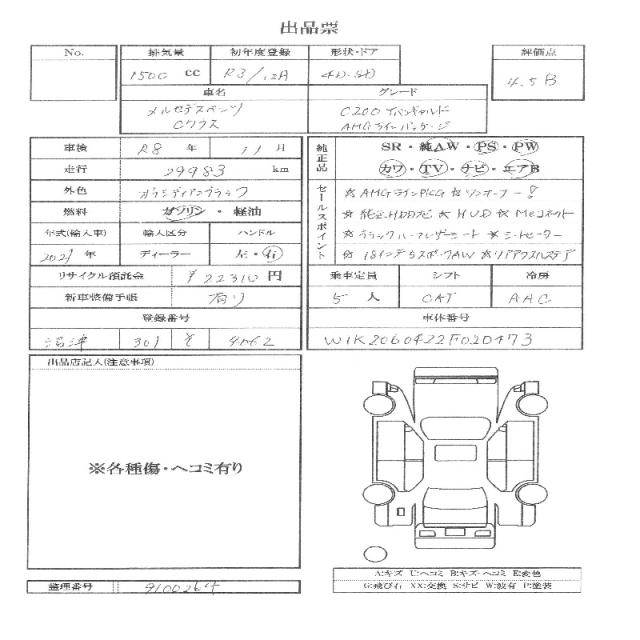 出品票
No. 排気量 初年度登録 形状・ドア 評価点
1500 cc R3/12A 4D・SD 4.5 B
車名 グレード
メルセデスベンツ C200 アバンギャルド
Cクラス AMGラインパッケージ
車検 R8 年 11 月 純正品 SR・純AW・PS・PW
走行 29983 km カワ・TV・ナビ・エアB
外色 オブシディアンブラック セールスポイント ☆AMGラインPKG ☆ワンオーナー!
燃料 ガソリン・軽油 ☆純正HDDナビ ☆HUD ☆Meコネクト
年式(輸入車) 輸入区分 ハンドル ☆ブラックハーフレザーシート ☆シートヒーター
2021 年 ディーラー 左・右 ☆18インチスポークAW ☆リアアクスルステア
リサイクル預託金 ¥22310 円 乗車定員 シフト 冷房
新車装備手帳 有り 5 人 CAT AAC
登録番号 車体番号
沼津 301 そ W1K2060422F020473
出品店記入(注意事項)
※各種傷・ヘコミ有り
A:キズ U:ヘコミ B:キズ・ヘコミ E:変色
G:飛び石 XX:交換 S:サビ W:波有 P:塗装
整理番号